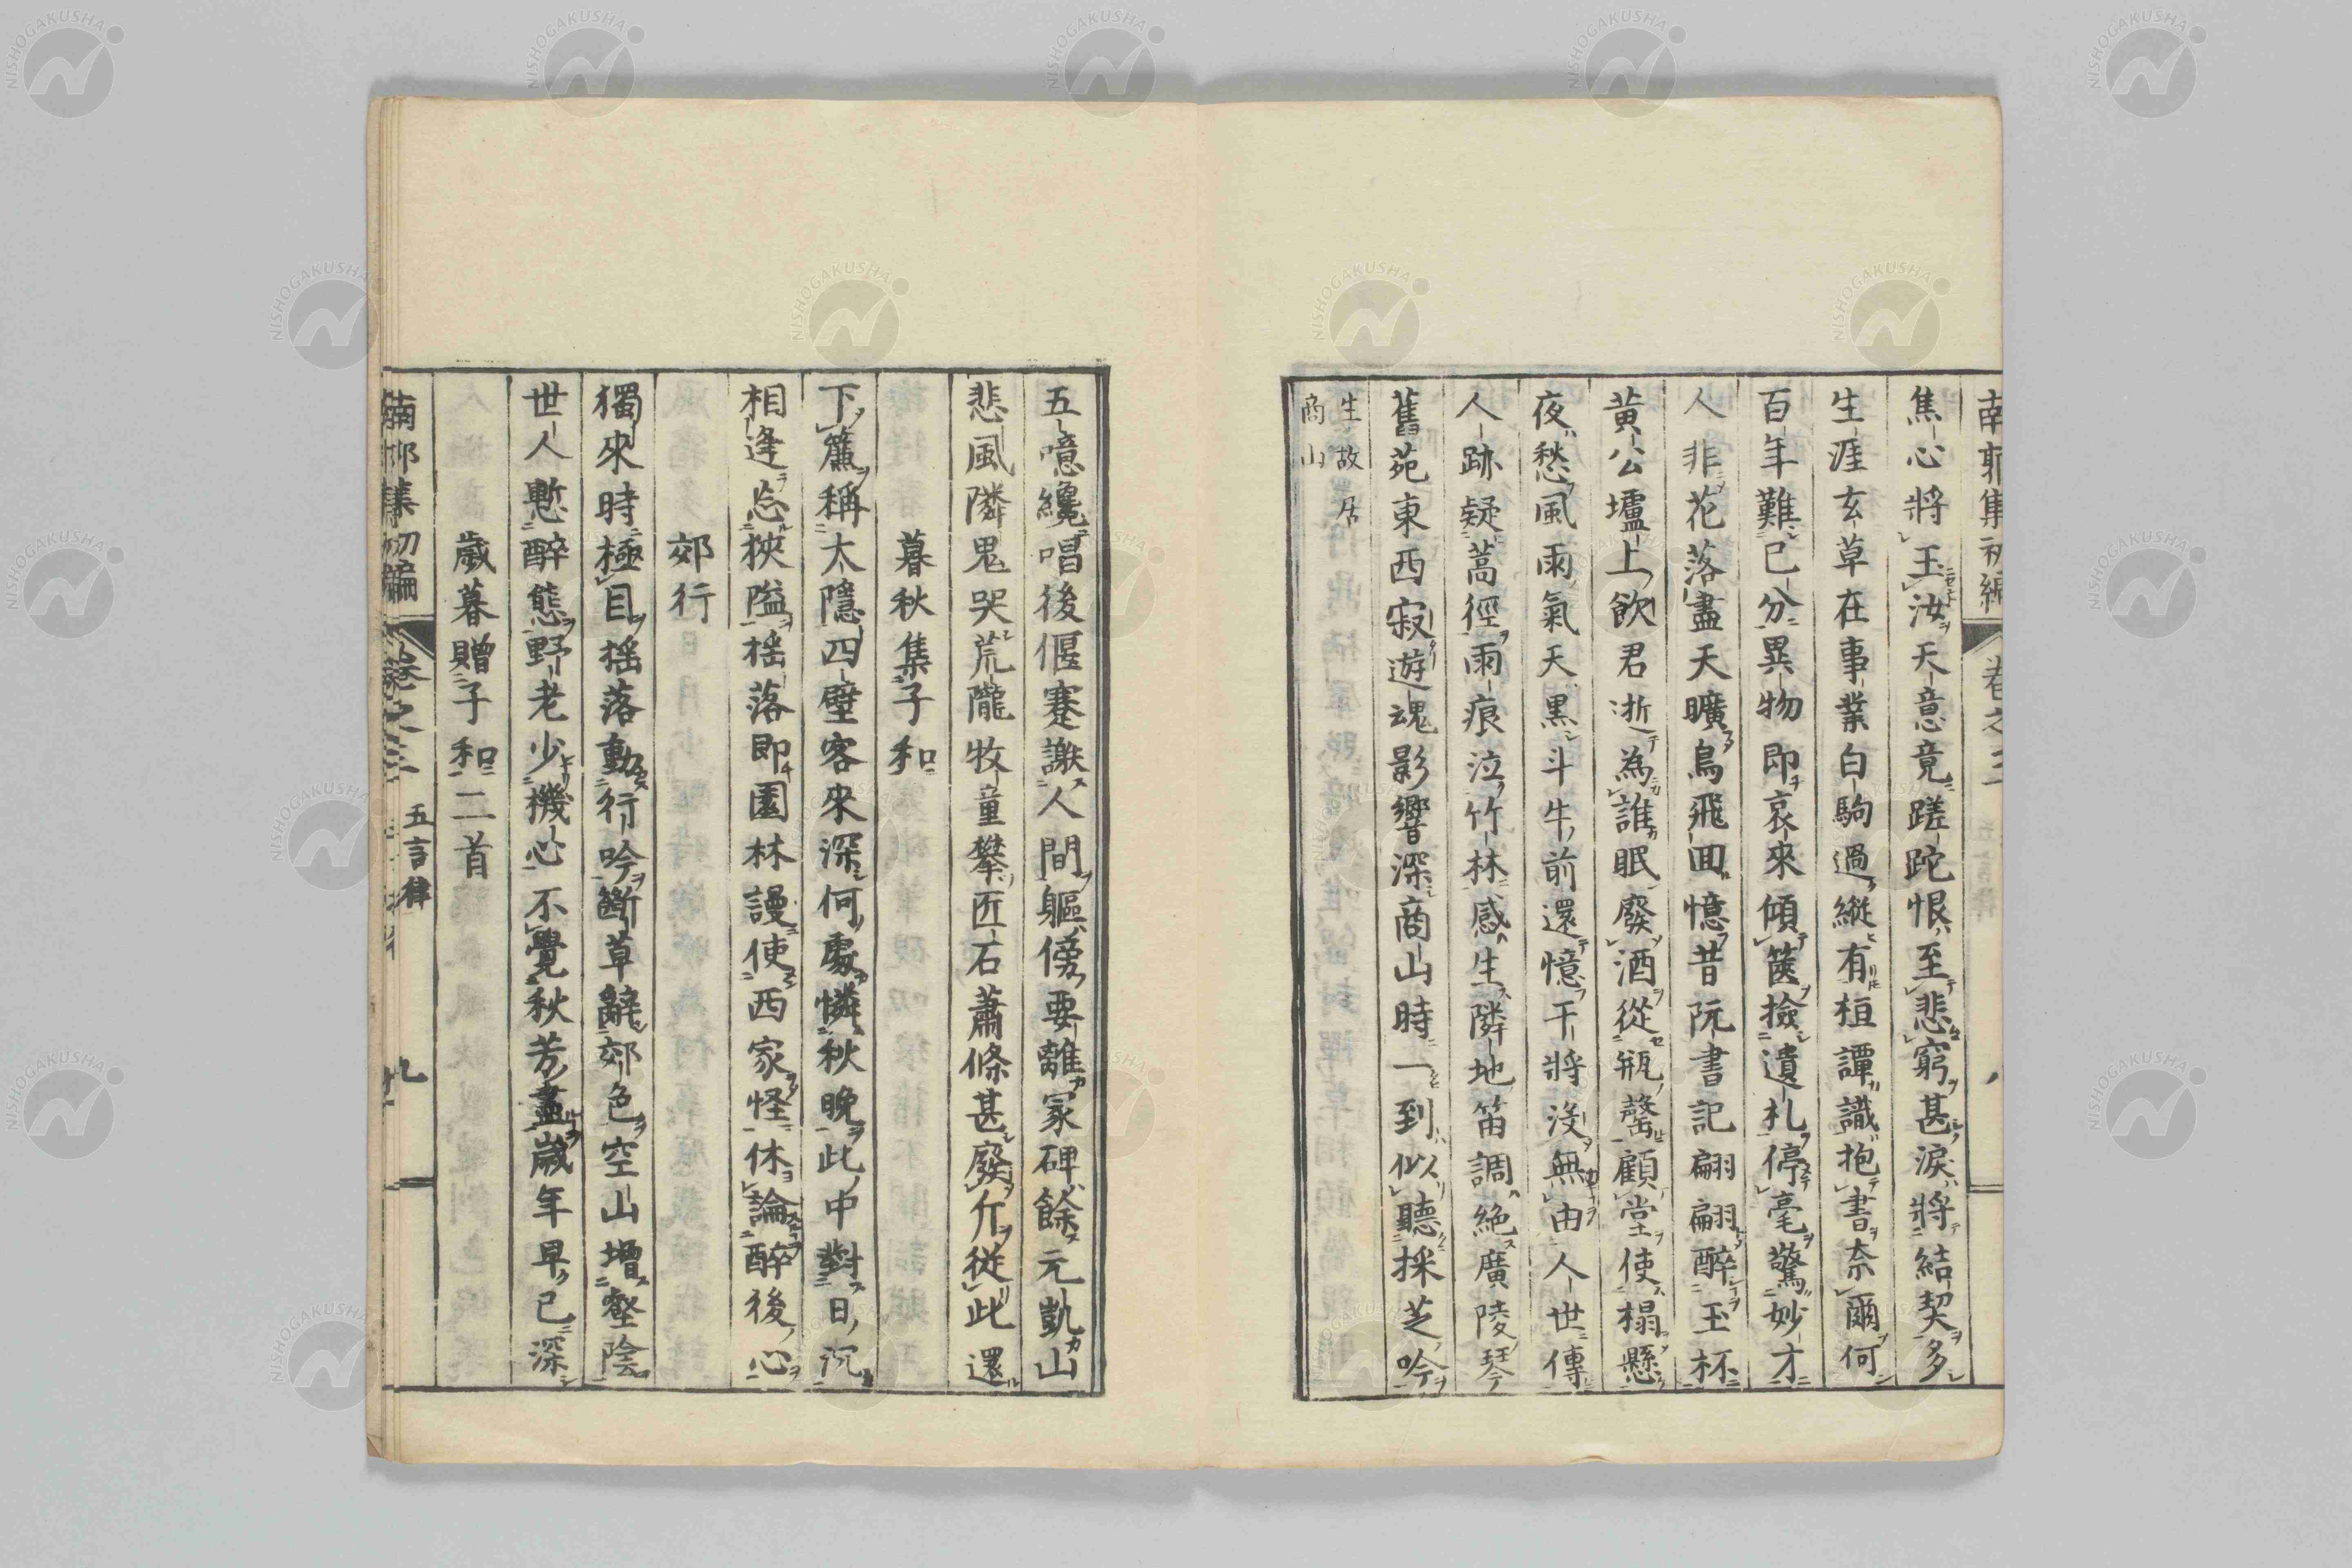 南郭集初編 卷之三
焦心將玉汝天意竟蹉跎恨至悲窮甚淚將結契多
生涯玄草在事業白駒過縱有桓譚識抱書奈爾何
百年難已分異物即哀來傾篋撿遺札停毫驚妙才
人非花落盡天曠鳥飛回憶昔阮書記翩翩醉玉杯
黃公壚上飲君逝為誰眠廢酒從瓶罄顧堂使榻懸
夜愁風雨氣天黑斗牛前還憶干將沒無由人世傳
人跡疑蒿徑雨痕泣竹林感生隣地笛調絶廣陵琴
舊苑東西寂遊魂影響深商山時一到似聽採芝吟
生故居
商山
五噫纔唱後偃蹇謝人間軀傍要離冢碑餘元凱山
悲風隣鬼哭荒隴牧童攀匠石蕭條甚廢斤從此還
暮秋集子和
下簾稱太隱四壁客來深何處憐秋晚此中對日沉
相逢忘狹隘搖落即園林謾使西家怪休論醉後心
郊行
獨來時極目搖落動行吟斷草辭郊色空山增壑陰
世人慙醉態野老少機心不覺秋芳盡歲年早已深
歲暮贈子和二首
南郭集初編 卷之三 五言律 九